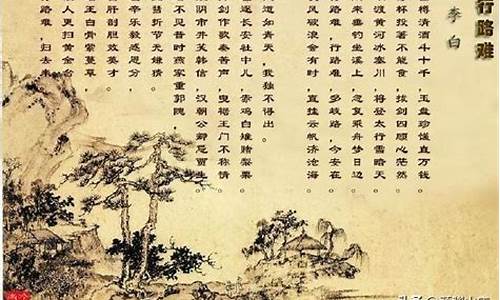 行路难
李白
樽清酒斗十千，玉盘珍馐直万钱。
杯投箸不能食，拔剑四顾心茫然。
渡黄河冰塞川，将登太行雪暗天。
来垂钓坐溪上，忽复乘舟梦日边。
路难，行路难，多歧路，今安在。
风破浪会有时，直挂云帆济沧海。
道如青天，我独不得出。
逐长安社中儿，赤鸡白雉赌梨栗。
剑作歌奏苦声，曳裾王门不称情。
阴市井笑韩信，汉朝公卿忌贾生。
不见昔时燕家重郭隗，
彗折节无嫌猜。
辛乐毅感恩分，
肝剖胆效英才。
王白骨萦蔓草，
更扫黄金台。
路难，归去来。